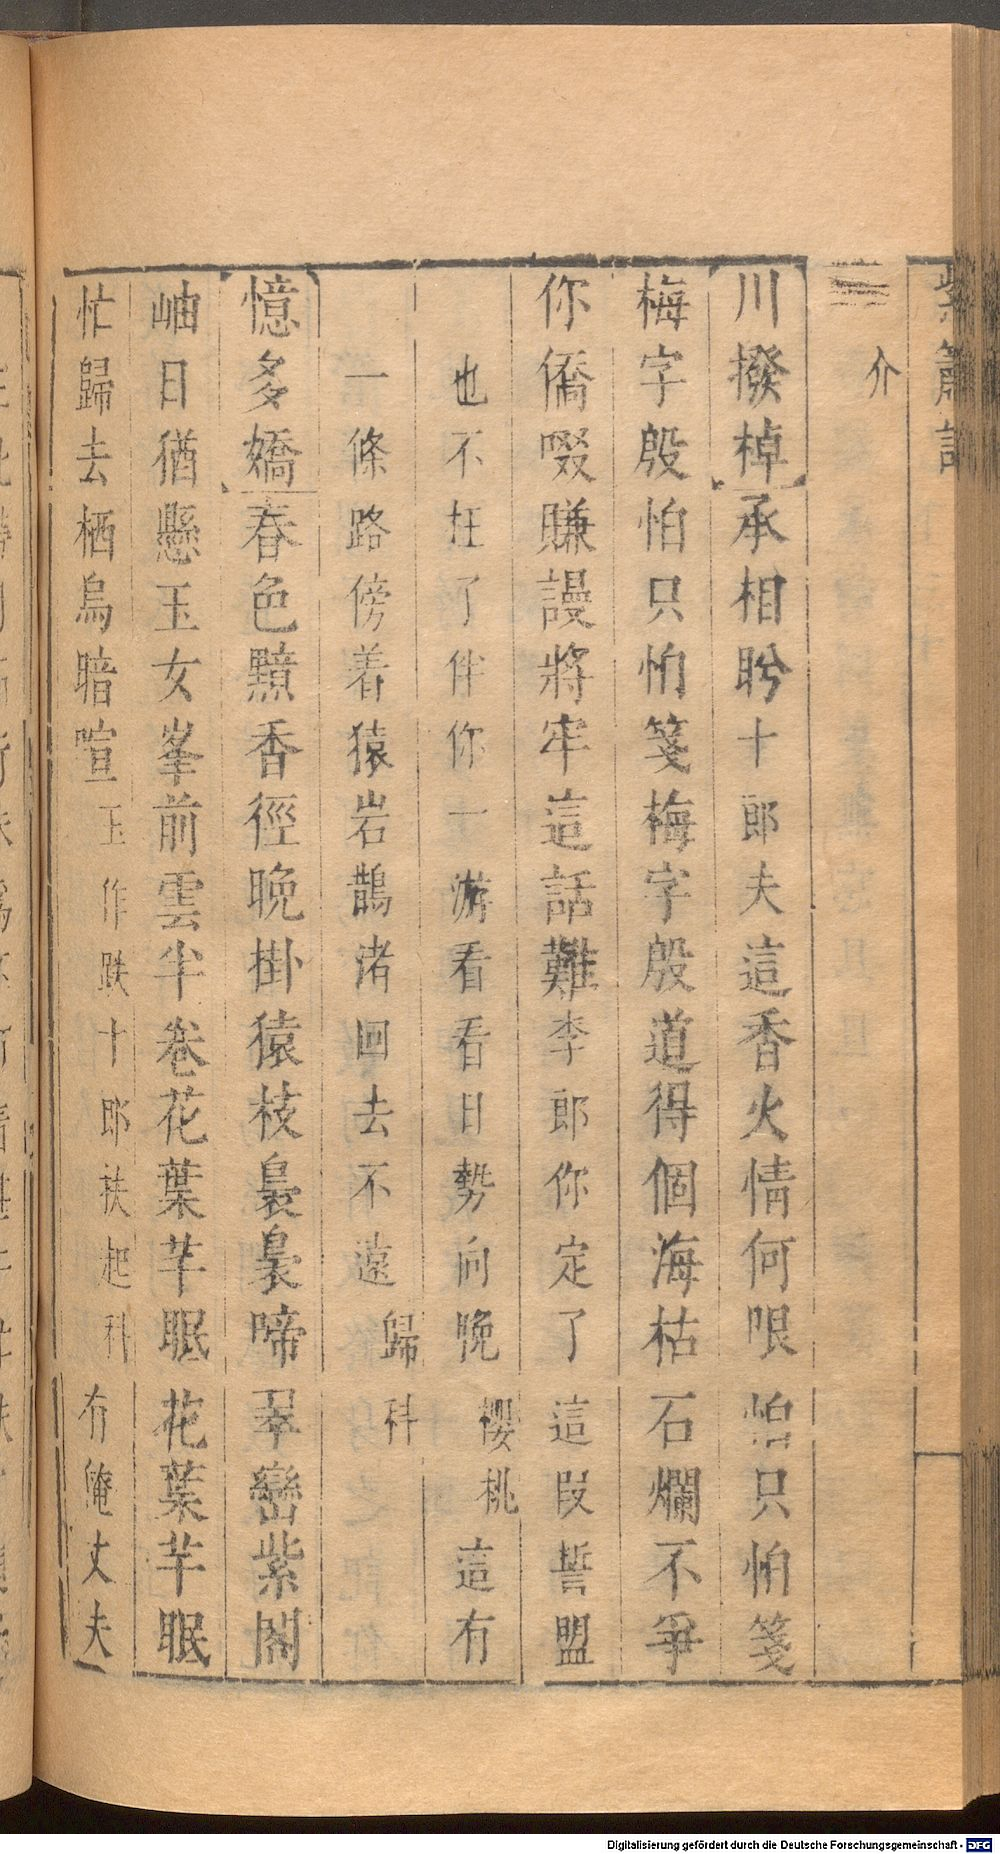 紫簫記
介
川撥棹承相盻十郎夫這香火情何限怕只怕箋
梅字殷怕只怕箋梅字殷道得個海枯石爛不爭
你僑啜賺謾將牢這話難李郎你定了這段誓盟
也不枉了伴你一游看看日勢向晚櫻桃這有
一條路傍着猿岩鵲渚回去不遠歸科
憶多嬌春色黯香徑晚掛猿枝裊裊啼翠巒紫閣
岫日猶懸玉女峯前雲半卷花葉芊眠花葉芊眠
忙歸去栖烏暗喧玉作跌十郎扶起科有俺丈夫
Digitalisierung gefördert durch die Deutsche Forschungsgemeinschaft - DFG